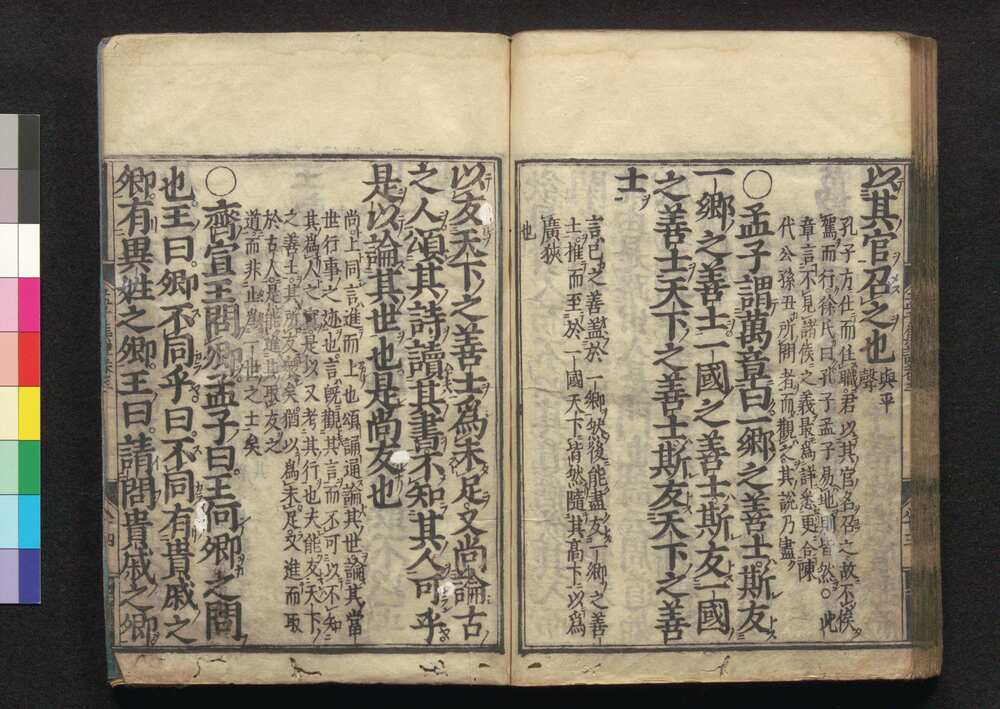 以其官召之也
與平
聲
孔子方仕而任職君以其官名召之故不俟
駕而行徐氏曰孔子孟子易地則皆然。此
章言不見諸侯之義最爲詳悉更合陳
代公孫丑所問者而觀之其說乃盡
○孟子謂萬章曰一鄉之善士斯友
一鄉之善士一國之善士斯友一國
之善士天下之善士斯友天下之善
士
言已之善蓋於一鄉然後能盡友一鄉之善
士推而至於一國天下皆然隨其高下以爲
廣狹
也
以友天下之善士爲未足又尚論古
之人頌其詩讀其書不知其人可乎
是以論其世也是尚友也
尚上同言進而上也頌誦通論其世論其當
世行事之迹也言既觀其言而不可以不知
其爲人之實是以又考其行也夫能友天下
之善士其所友衆矣猶以爲未足又進而取
於古人是能進其取友之
道而非止爲一世之士矣
○齊宣王問卿孟子曰王何卿之問
也王曰卿不同乎曰不同有貴戚之
卿有異姓之卿王曰請問貴戚之卿